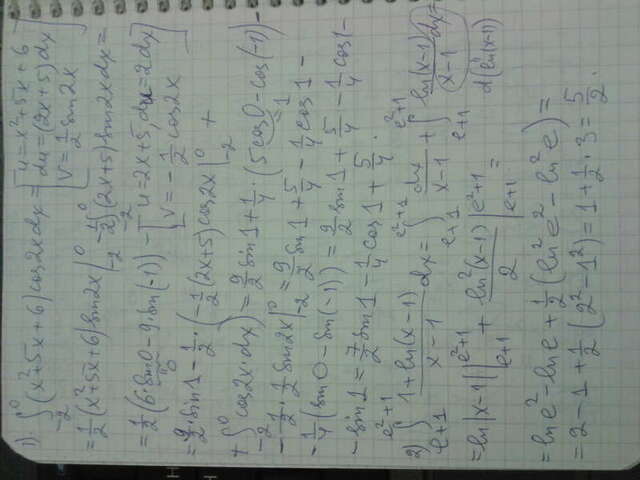 1) ∫_{-2}^{0} (x²+5x+6) cos2x dx = [u = x²+5x+6
du = (2x+5) dx
v = 1/2 sin2x]
= 1/2 (x²+5x+6) sin2x |_{-2}^{0} - 1/2 ∫_{-2}^{0} (2x+5) sin2x dx =
= 1/2 (6 sin0 - 9 sin(-1)) - [u = 2x+5, du = 2dx
v = -1/2 cos2x]
= 9/2 · sin1 - 1/2 · (-1/2 (2x+5) cos2x |_{-2}^{0} +
+ ∫_{-2}^{0} cos2x · dx) = 9/2 sin1 + 1/4 · (5 cos0 - cos(-1)) -
- 1/2 · 1/2 sin2x |_{-2}^{0} = 9/2 sin1 + 5/4 - 1/4 cos1 -
- 1/4 (sin0 - sin(-1)) = 9/2 sin1 + 5/4 - 1/4 cos1 -
- sin1 = 7/2 sin1 - 1/4 cos1 + 5/4.
2) ∫_{e+1}^{e²+1} (1+ln(x-1))/(x-1) dx = ∫_{e+1}^{e²+1} dx/(x-1) + ∫_{e+1}^{e²+1} ln(x-1)/(x-1) dx =
d(ln(x-1))
= ln|x-1| |_{e+1}^{e²+1} + ln²(x-1)/2 |_{e+1}^{e²+1} =
= ln e² - ln e + 1/2 (ln² e² - ln² e) =
= 2 - 1 + 1/2 (2² - 1²) = 1 + 1/2 · 3 = 5/2.